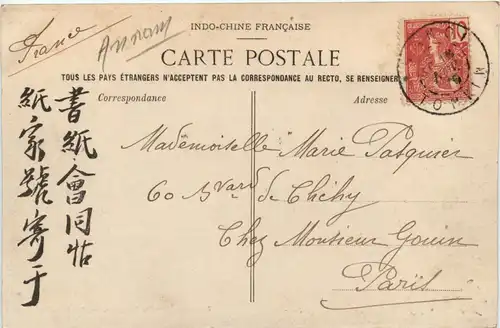 France
Annam
INDO-CHINE FRANÇAISE
CARTE POSTALE
TOUS LES PAYS ÉTRANGERS N'ACCEPTENT PAS LA CORRESPONDANCE AU RECTO, SE RENSEIGNER
Correspondance
Adresse
書紙會同怗
紙家號寄于
Mademoiselle Marie Pasquier
60 Bvard de Clichy
Chez Monsieur Gouin
Paris